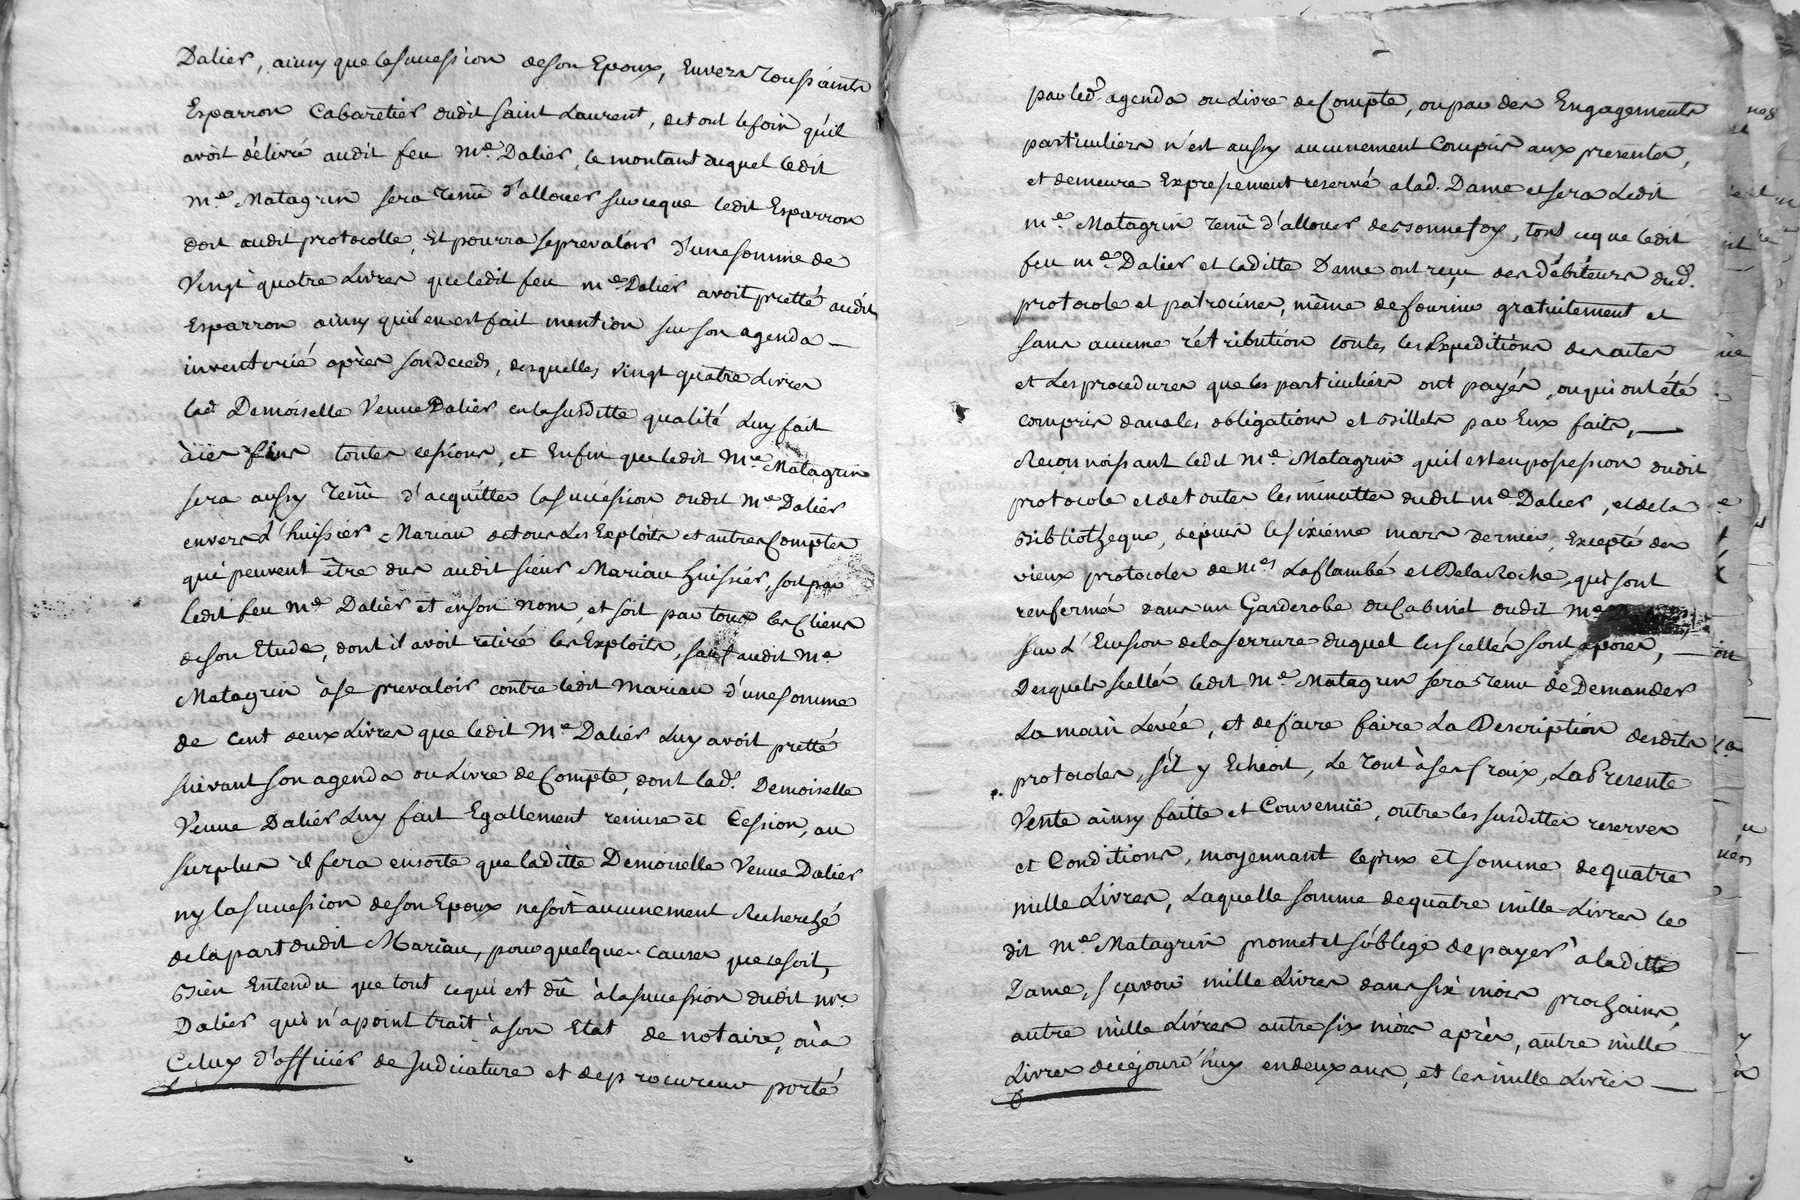 Dalier, ainsy que la succession de son Epoux, Envers Toussaints
Esparron Cabaretier dudit Saint Laurent, de tout le foin qu'il
avoit délivré audit feu Me. Dalier, le montant duquel ledit
Me. Matagrin sera tenû d'allouer sur ce que ledit Esparron
doit audit protocolle, Et pourra se prevaloir d'une somme de
Vingt quatre Livres que ledit feu Me Dalier avoit pretté audit
Esparron ainsy quil en est fait mention sur son agenda —
inventorié après son deceds, desquelles vingt quatre Livres
lad. Demoiselle Veuve Dalier en la susditte qualité Luy fait
à ces fins toutes cessions, et Enfin que ledit Me Matagrin
sera aussy tenû d'acquitter la succession dudit Me Dalier
envers L'huissier Mariau de tous Les Exploits et autres Comptes
qui peuvent être dus audit sieur Mariau huissier, soit par
ledit feu Me Dalier et en son nom, et soit par tous les Cliens
de son Etude, dont il avoit retiré les Exploits, sauf audit Me
Matagrin à se prevaloir contre ledit Mariau d'une somme
de cent deux Livres que ledit Me Dalier Luy avoit pretté
suivant son agenda ou Livre de Compte, dont lad. Demoiselle
Veuve Dalier Luy fait Egallement remise et Cession, au
surplus il fera ensorte que laditte Demoiselle Veuve Dalier
ny la succession de son Epoux ne soit aucunement Recherché
de la part dudit Mariau, pour quelque cause que ce soit,
Bien Entendu que tout ce qui est dû à la succession dudit Me
Dalier qui n'a point trait à son Etat de notaire, ou à
Celuy d'officier de Judicature et de procureur porté
par led. agenda ou Livre de Compte, ou par des Engagements
particuliers n'est aussy aucunement Compris aux presentes,
et demeure Expressement reservé a lad. Dame et sera Ledit
Me. Matagrin tenû d'allouer de bonne foy, tout ce que ledit
feu Me Dalier et laditte Dame ont reçu des débiteurs dud.
protocole et patrociner, même de fournir gratuitement et
sans aucune rétribution toutes les Expeditions des actes
et Les procedures que les particuliers ont payés, ou qui ont été
compris dans les obligations et Billets par Eux faits, —
Reconnoissant ledit Me. Matagrin qu'il est en possession dudit
protocole et de toutes les minuttes dudit Me Dalier, et de la
Bibliotheque, depuis le sixième mars dernier, Excepté des
vieux protocoles de Mes Laflambé et DelaRoche, qui sont
renfermé dans un Garderobe du Cabinet dudit Me
sur L'Euision de la serrure duquel les scellés sont aposés, —
Desquels scellés ledit Me. Matagrin sera tenu de Demander
La main Levée, et de faire faire La Description desdits
protocoles, s'il y Echeoit, Le Tout à ses fraix, La Presente
Vente ainsy faitte et Convenüe, outre les susdittes reserves
et Conditions, moyennant le prix et somme de quatre
mille Livres, Laquelle somme de quatre mille Livres le
dit Me Matagrin promet et s'oblige de payer à laditte
Dame, sçavoir mille Livres dans six mois prochains,
autre mille Livres autre six mois après, autre mille
Livres de cejourd'huy en deux ans, et les mille Livres —